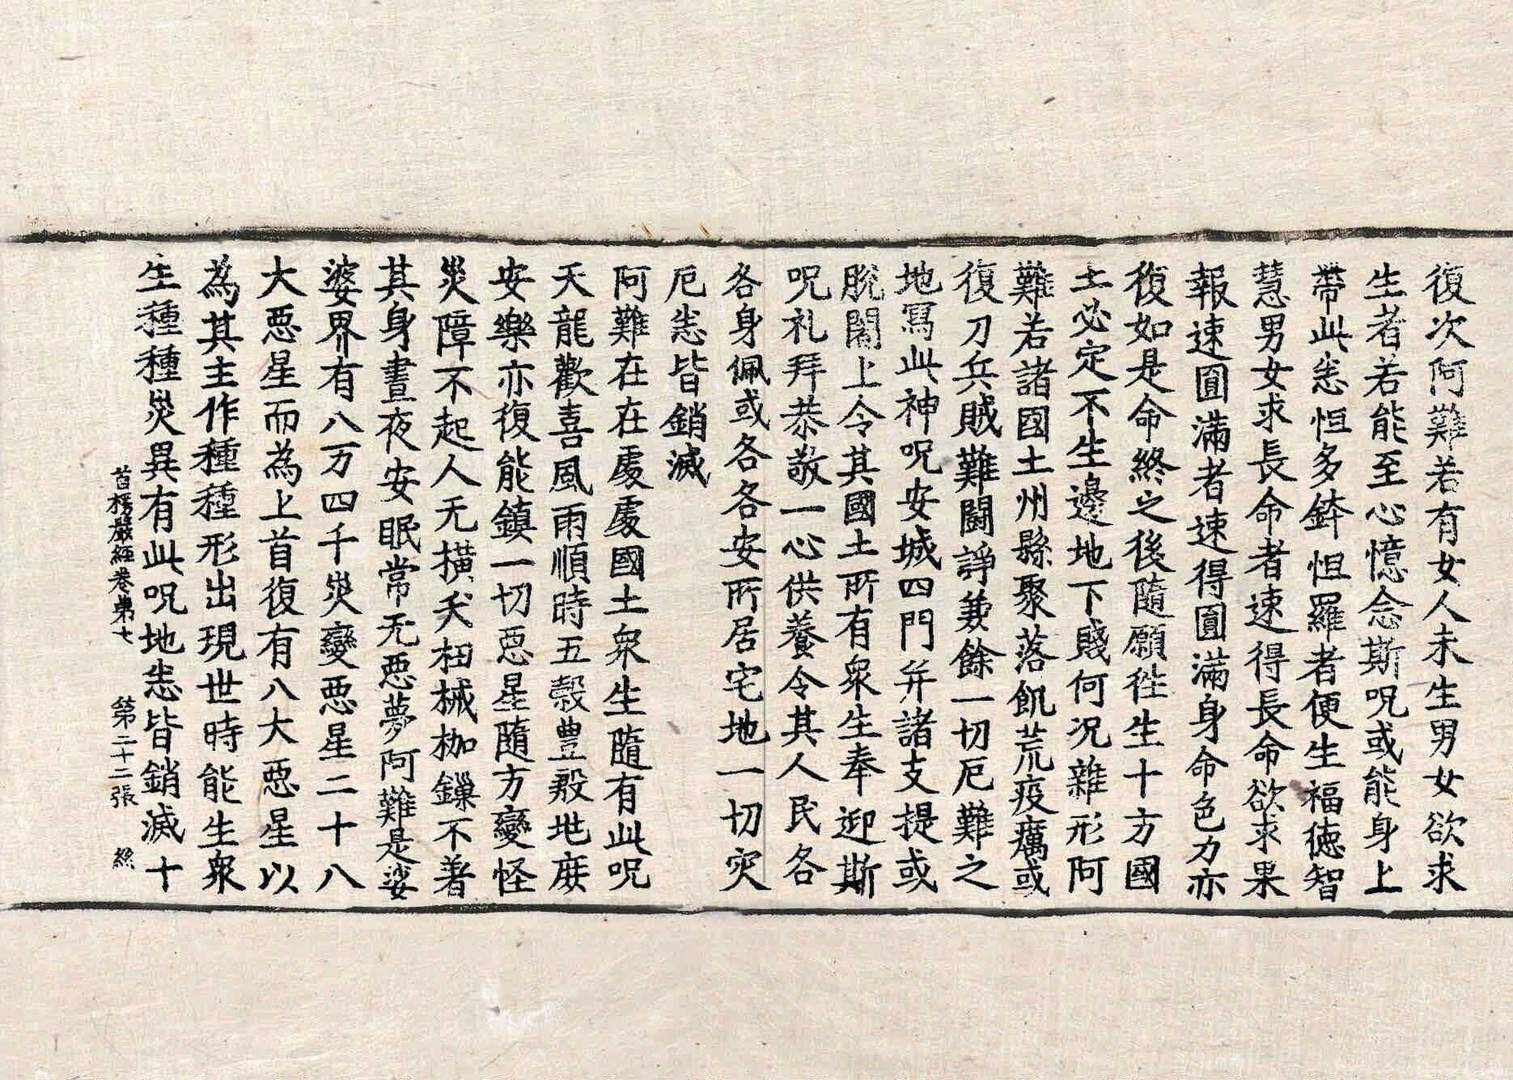 復次阿難若有女人未生男女欲求
生者若能至心憶念斯呪或能身上
帶此悉怛多鉢怛羅者便生福德智
慧男女求長命者速得長命欲求果
報速圓滿者速得圓滿身命色力亦
復如是命終之後隨願往生十方國
土必定不生邊地下賤何況雜形阿
難若諸國土州縣聚落飢荒疫癘或
復刀兵賊難鬪諍兼餘一切厄難之
地寫此神呪安城四門并諸支提或
脫闍上令其國土所有衆生奉迎斯
呪礼拜恭敬一心供養令其人民各
各身佩或各各安所居宅地一切灾
厄悉皆銷滅
阿難在在處處國土衆生隨有此呪
天龍歡喜風雨順時五穀豊殷兆庶
安樂亦復能鎮一切惡星隨方變怪
災障不起人无橫夭杻械枷鏁不著
其身晝夜安眠常无惡夢阿難是娑
婆界有八万四千災變惡星二十八
大惡星而為上首復有八大惡星以
為其主作種種形出現世時能生衆
生種種災異有此呪地悉皆銷滅十
首楞嚴經卷第七 第二十二張 絲